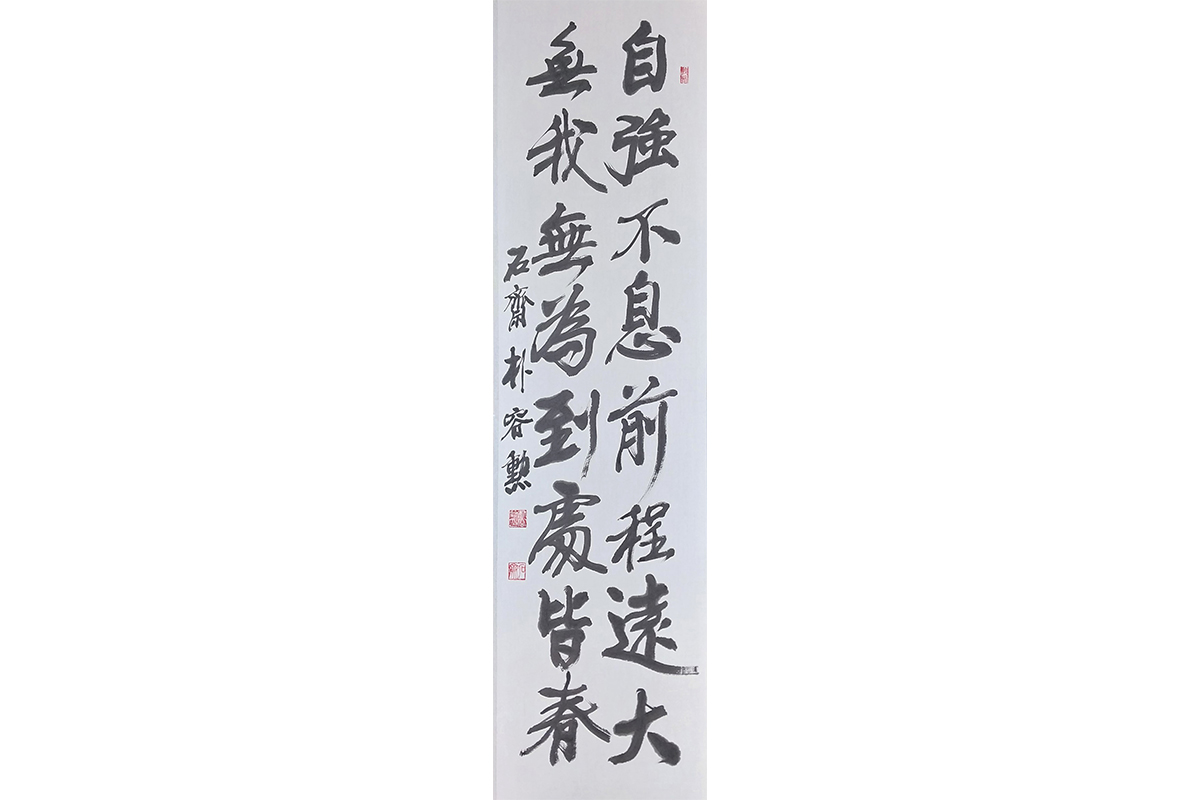 自強不息前程遠大
無我無為到處皆春
石齋朴容勳